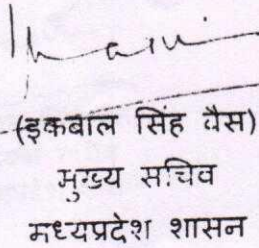 (इकबाल सिंह बैस)
मुख्य सचिव
मध्यप्रदेश शासन